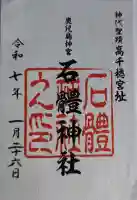 神代聖蹟高千穂宮址
鹿児島神宮
石體神社
石體
令和七年一月二十六日